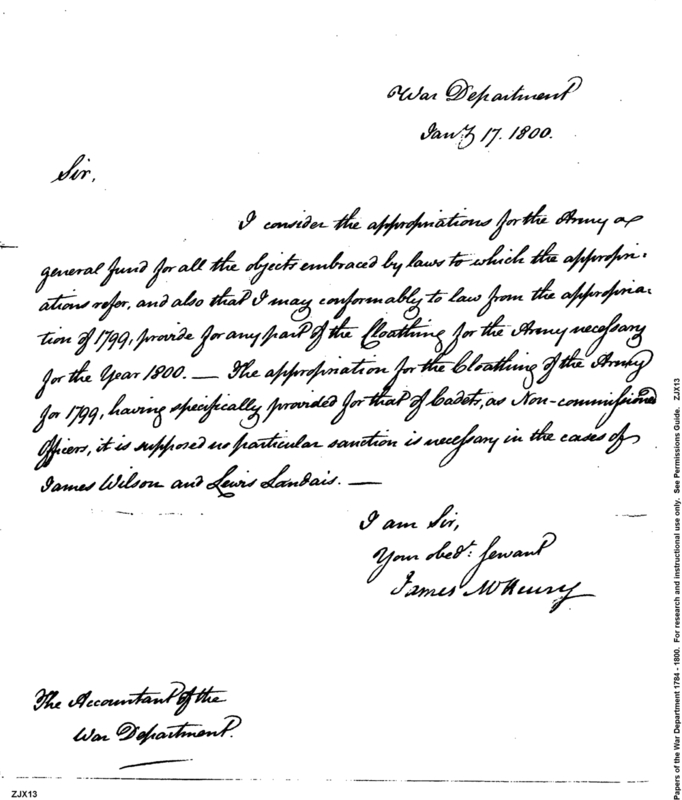 War Department
Jany 17. 1800.
Sir,
I consider the appropriations for the Army a
general fund for all the objects embraced by laws to which the appropri-
ations refer, and also that I may conformably to law from the appropria-
tion of 1799, provide for any part of the Cloathing for the Army necessary
for the Year 1800. — The appropriation for the Cloathing of the Army
for 1799, having specifically provided for that of Cadets, as Non-commissioned
Officers, it is supposed no particular sanction is necessary in the cases of
James Wilson and Lewis Landais. —
I am Sir,
Your obedt: servant
James McHenry
The Accountant of the
War Department.
ZJX13
Papers of the War Department 1784 - 1800. For research and instructional use only. See Permissions Guide. ZJX13